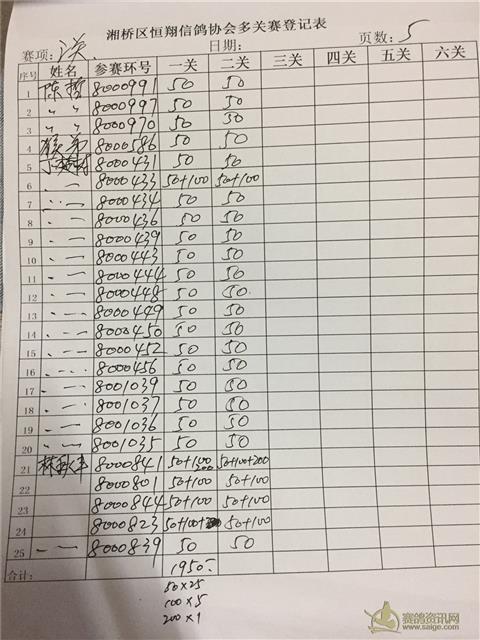 湘桥区恒翔信鸽协会多关赛登记表
赛项: 日期: 页数: 5
序号 姓名 参赛环号 一关 二关 三关 四关 五关 六关
1 陈哲 8000991 50 50
2 〃 〃 8000997 50 50
3 〃 〃 8000970 50 50
4 8000586 50 50
5 8000431 50 50
6 8000433 50+100 50+100
7 8000434 50 50
8 8000436 50 50
9 8000439 50 50
10 8000443 50 50
11 8000444 50 50
12 8000448 50 50
13 8000449 50 50
14 8000450 50 50
15 8000452 50 50
16 8000456 50 50
17 8001039 50 50
18 8001037 50 50
19 8001036 50 50
20 8001035 50 50
21 8000841 50+100 200 50+100+200
22 8000801 50+100 50+100
23 8000844 50+100 50+100
24 8000823 50+100 50+100
25 8000839 50 50
合计: 1950
50×25
100×5
200×1
赛鸽资讯网
www.saige.com